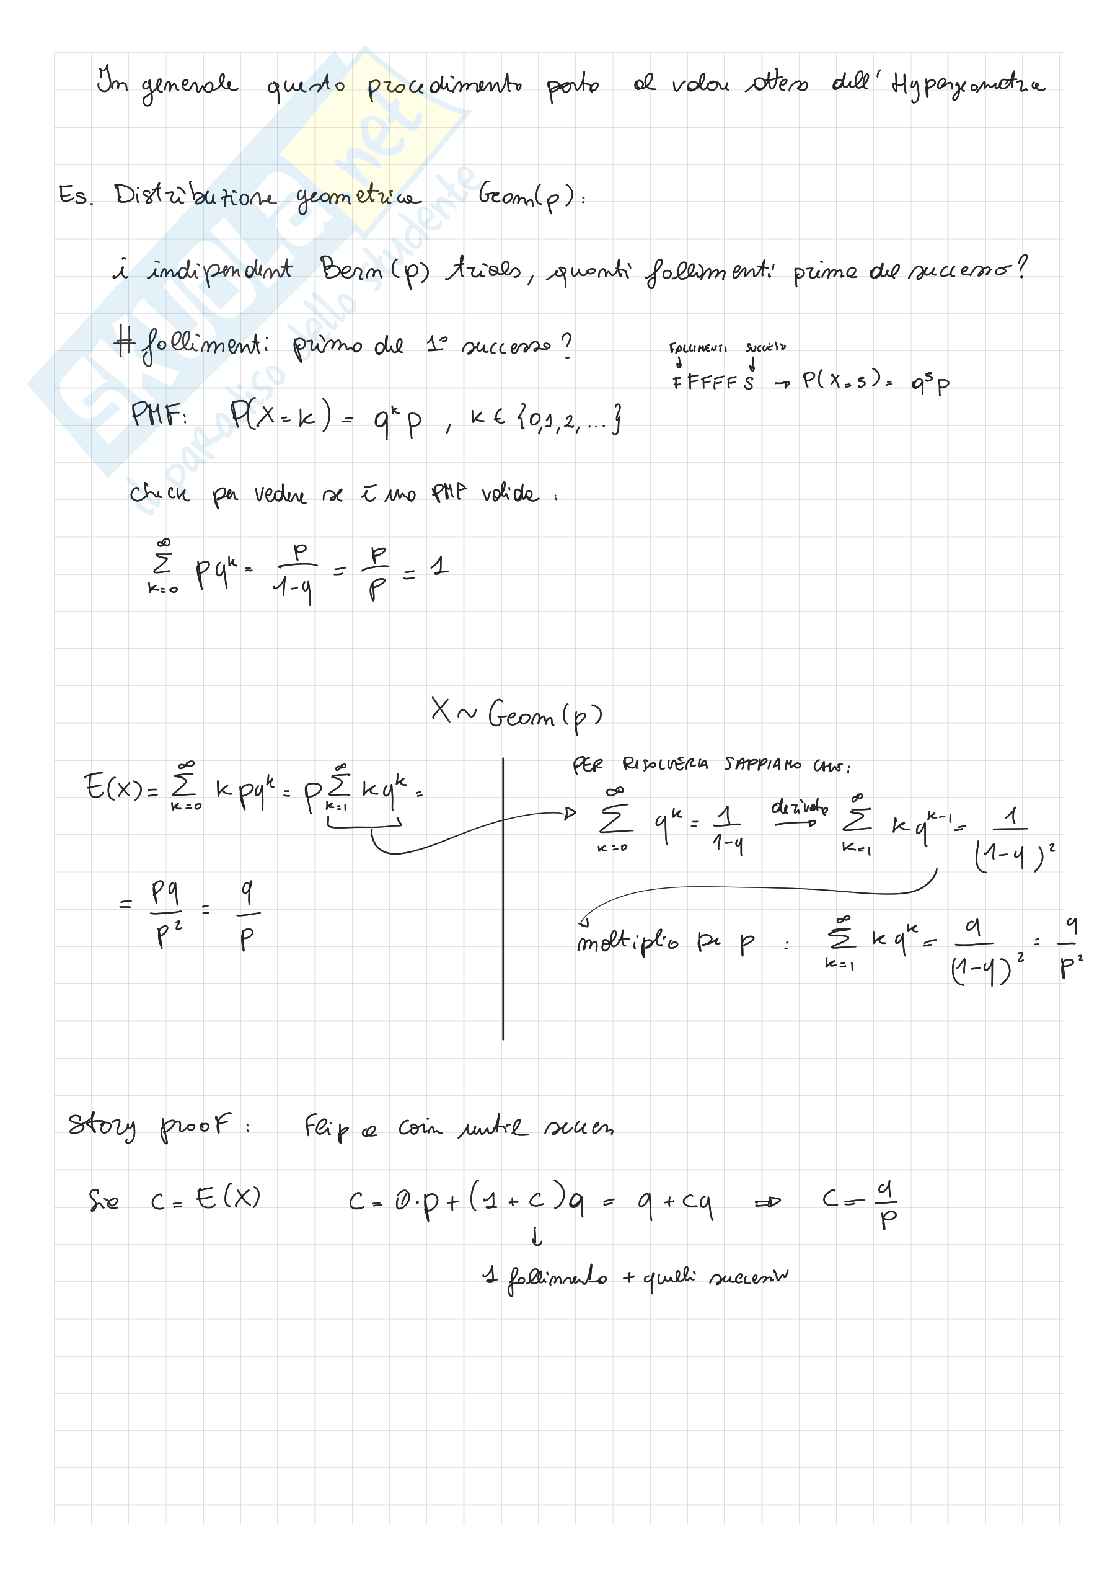 In generale questo procedimento porta al valore atteso dell'Hypergeometrica
Es. Distribuzione geometrica Geom(p):
i indipendent Bern(p) trials, quanti fallimenti prima del successo?
# fallimenti primo del 1° successo?
FALLIMENTI SUCCESSO
↓ ↓
FFFFF S → P(X=5) = q⁵p
PMF: P(X=k) = qᵏ p , k ∈ {0,1,2,...}
check per vedere se è una PMF valida:
∑_{k=0}^{∞} pqᵏ = p/(1-q) = p/p = 1
X ~ Geom(p)
PER RISOLVERLA SAPPIAMO CHE:
E(X) = ∑_{k=0}^{∞} k pqᵏ = p ∑_{k=1}^{∞} k qᵏ =
∑_{k=0}^{∞} qᵏ = 1/(1-q) derivata → ∑_{k=1}^{∞} k qᵏ⁻¹ = 1/(1-q)²
= pq/p² = q/p
moltiplio per p : ∑_{k=1}^{∞} k qᵏ = q/(1-q)² = q/p²
Story proof: Flip a coin until succes
Sia c = E(X) c = 0·p + (1+c)q = q + cq ⇒ c = q/p
↓
1 fallimento + quelli successivi
skuola.net
il paradiso dello studente